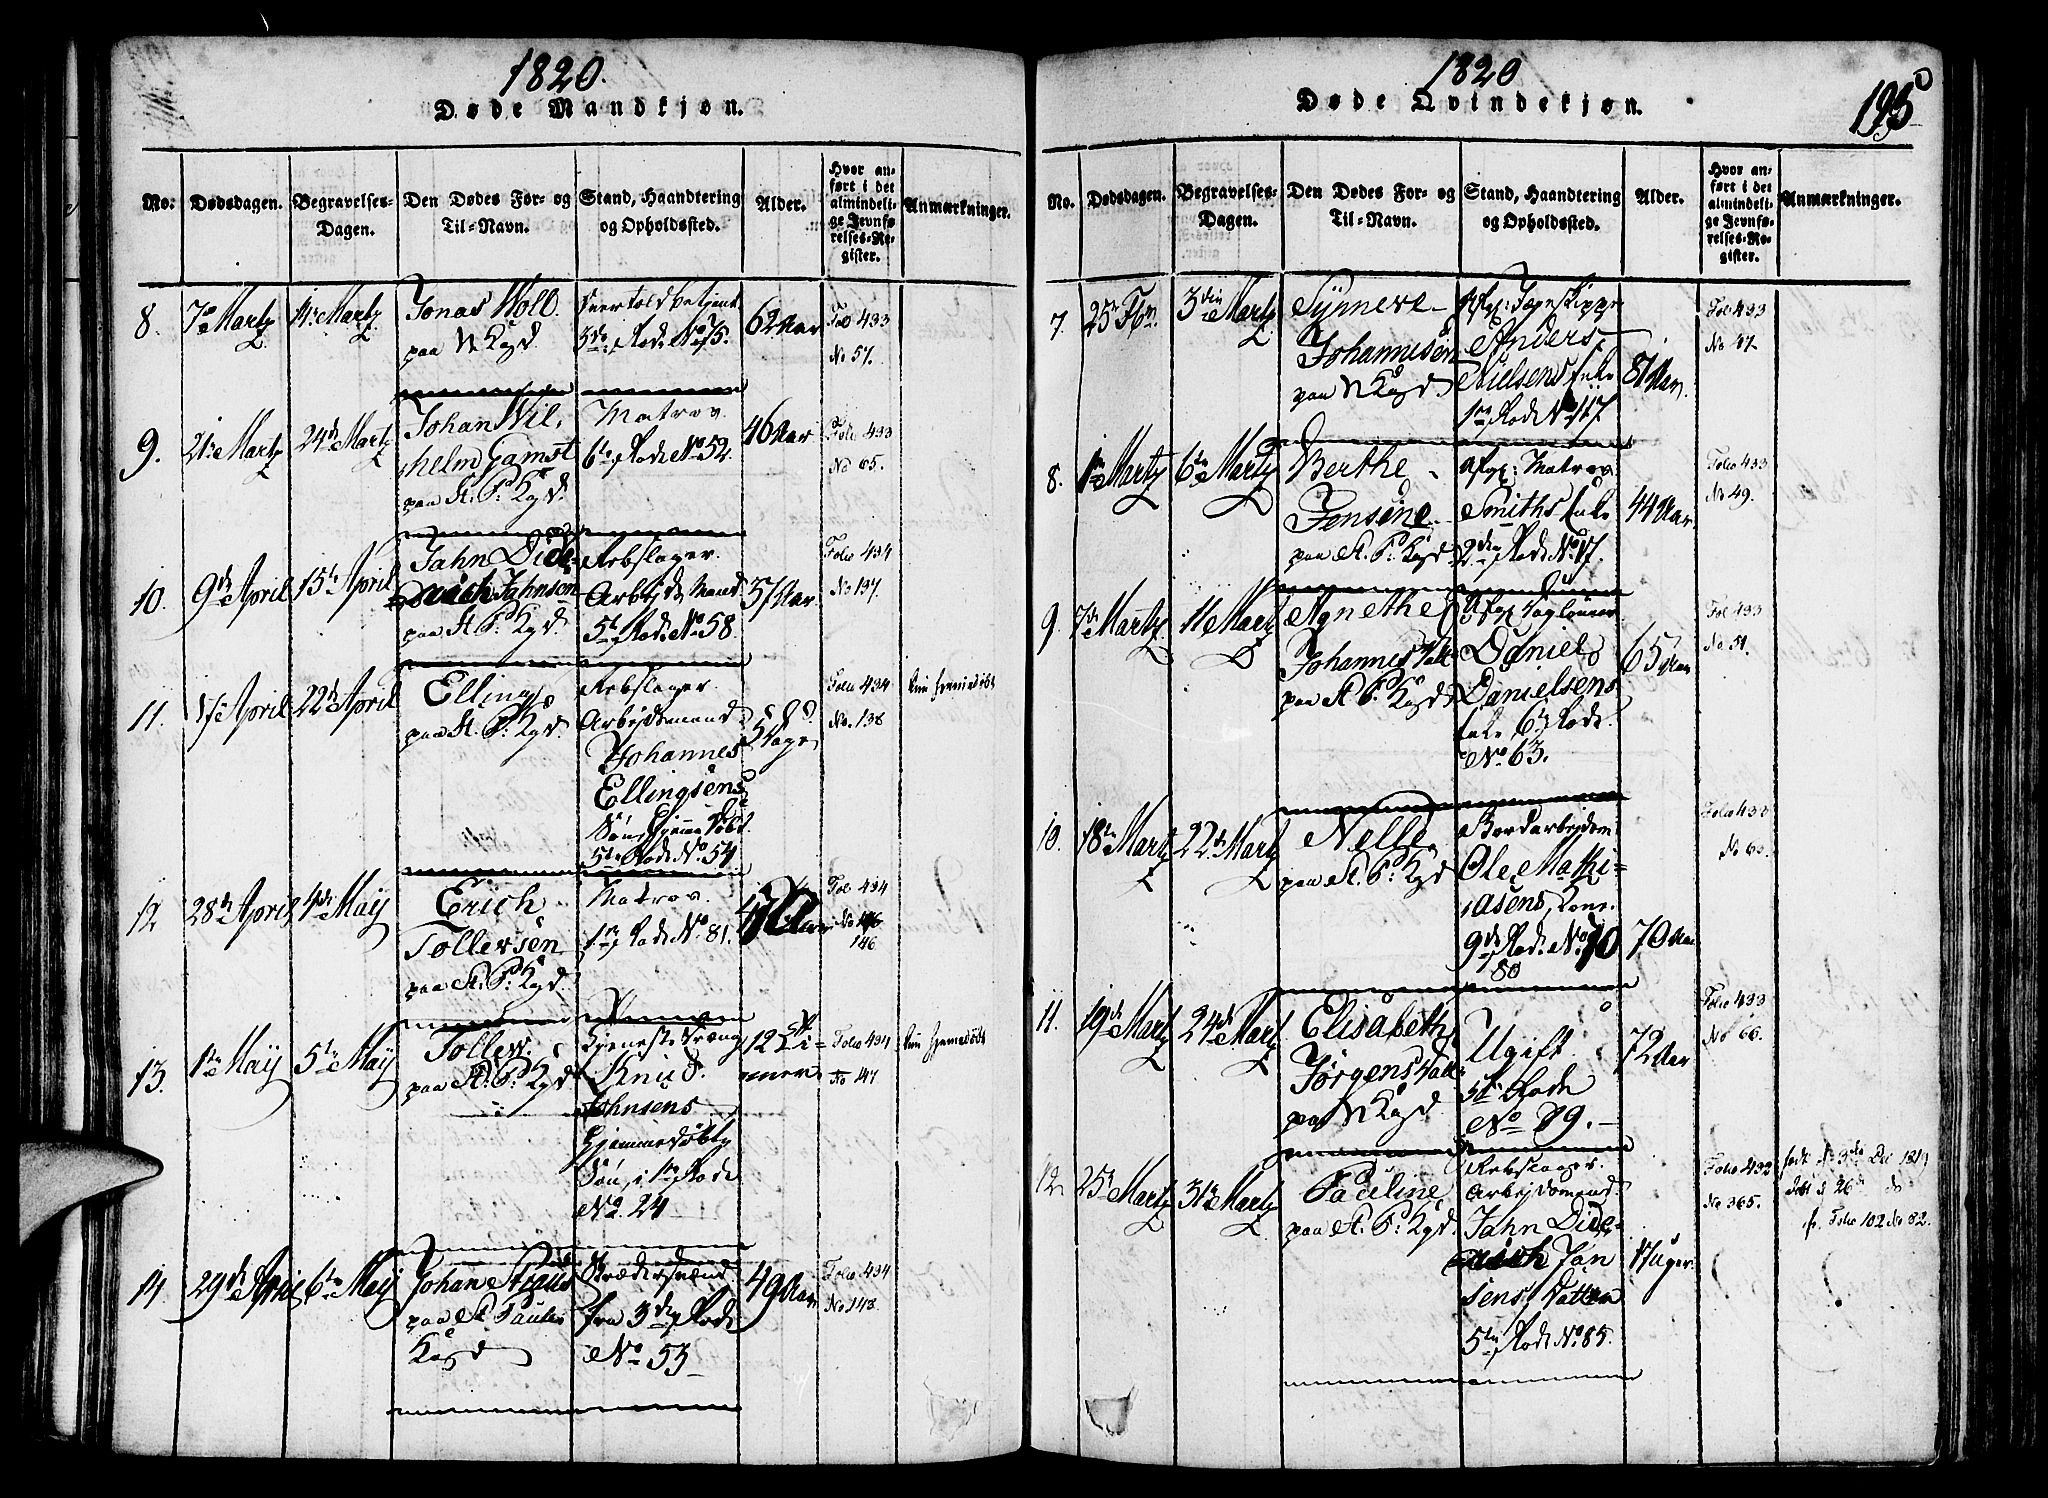 1820.
Døde Mandkjøn.
No:
Dødsdagen.
Begravelses-
Dagen.
Den Dødes For- og
Til-Navn.
Stand, Haandtering
og Opholdssted.
Alder.
Hvor an-
ført i det
almindeli-
ge Jevnfø-
relses-Re-
gister.
Anmærkninger.
8.
7de Martz
11te Martz
Jonas Woll
paa N Kgd.
3die Rode No 75.
62 Aar
Fol 433
No 57.
9.
21de Martz
24de Martz
Johan Wil-
helm Gamst
paa St. P: Kgd.
Matros.
6te Rode No 52.
46 Aar
Folio 433
No 65.
10.
9de April
15de April
Jahn Dide-
rich Jahnsen
paa St. P: Kgd.
Rebslager.
Arbejds Mand
5te Rode No 58.
57 Aar
Folio 434
No 137.
11.
17de April
22de April
Elling
paa St. P: Kgd.
Rebslager.
Arbejdsmand
Johannes
Ellingsens
Søn, hjemme døbt.
5te Rode No 54
5 Dage
Folio 434
No. 138
kun hjemmedøbt
12
28de April
4de Maij
Erich
Tollersen
paa St. P: Kgd.
Matros.
1ste Rode No 81.
Aar
Fol 434
146
13.
1ste Maij
5te Maij
Toller.
paa St. P: Kgd
Tjeneste Dreng
Knud
Johnsens
hjemmedøbte
Søn, i 1ste Rode
No. 24
12 Ti-
mer
Folio 434
No 147
kun hjemmedøbt
14
29de April
6te Maij
Johan
paa St Pauls
Kgd
fra 3die Rode
No 53
49 Aar
Folio 434
No 148.
1820
Døde Qvindekjøn.
195
No.
Dødsdagen.
Begravelses-
Dagen.
Den Dødes For- og
Til-Navn.
Stand, Haandtering
og Opholdssted.
Alder.
Hvor an-
ført i det
almindeli-
ge Jevnfø-
relses-Re-
gister.
Anmærkninger.
7.
3die Martz
Synneve
Johannisen
paa N Kgd
Anders
Nielsens Enke
1ste Rode No 117
81 Aar
Fol 433
No 47.
8.
1ste Martz
6te Martz
Berthe
Jensine
paa St. P: Kgd
Afg: Matros
Smiths Enke
2den Rode No 17.
44 Aar
Folio 433
No 49.
9.
7de Martz
11 Martz
Agnethe
Johannis Datt:
paa St. P: Kgd
Afg: Dagløner
Daniel
Danielsens
Enke 6te Rode
No 63.
65 Aar
Fol 433
No 51.
10.
18de Martz
22de Martz
Nelle
paa St. P: Kgd
Bordarbejdsm
Ole Mathi-
asens Kone
9de Rode No 70
80
70 Aar
Folio 433
No 65.
11.
19de Martz
24de Martz
Elisabeth
Jørgens Datt:
paa N Kgd
Ugift
5te Rode
No 89.
72 Aar
Folio 433
No 66.
12
25de Martz
31te Martz
Pauline
paa St. P: Kgd.
Rebslager.
Arbejdsmand
Jahn Dide-
rich Jan
sens Datter
5te Rode No 85.
Uger.
Folio 432
No 365.
født d 3die Dec 1819
døbt d 26de do
fr. Folio 102 No 82.